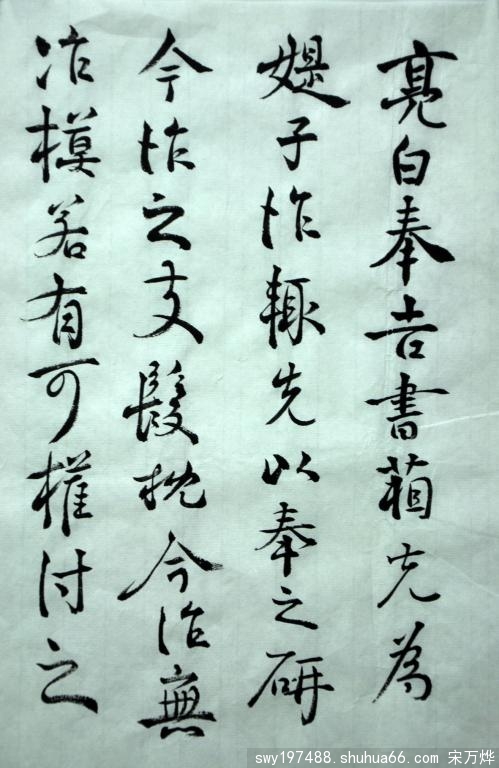 亮白奉告書箱先為
媞子作輙先以奉之研
今作之支髮枕今治無
冶模若有可權付之
swy197488.shuhua66.com 宋万烨